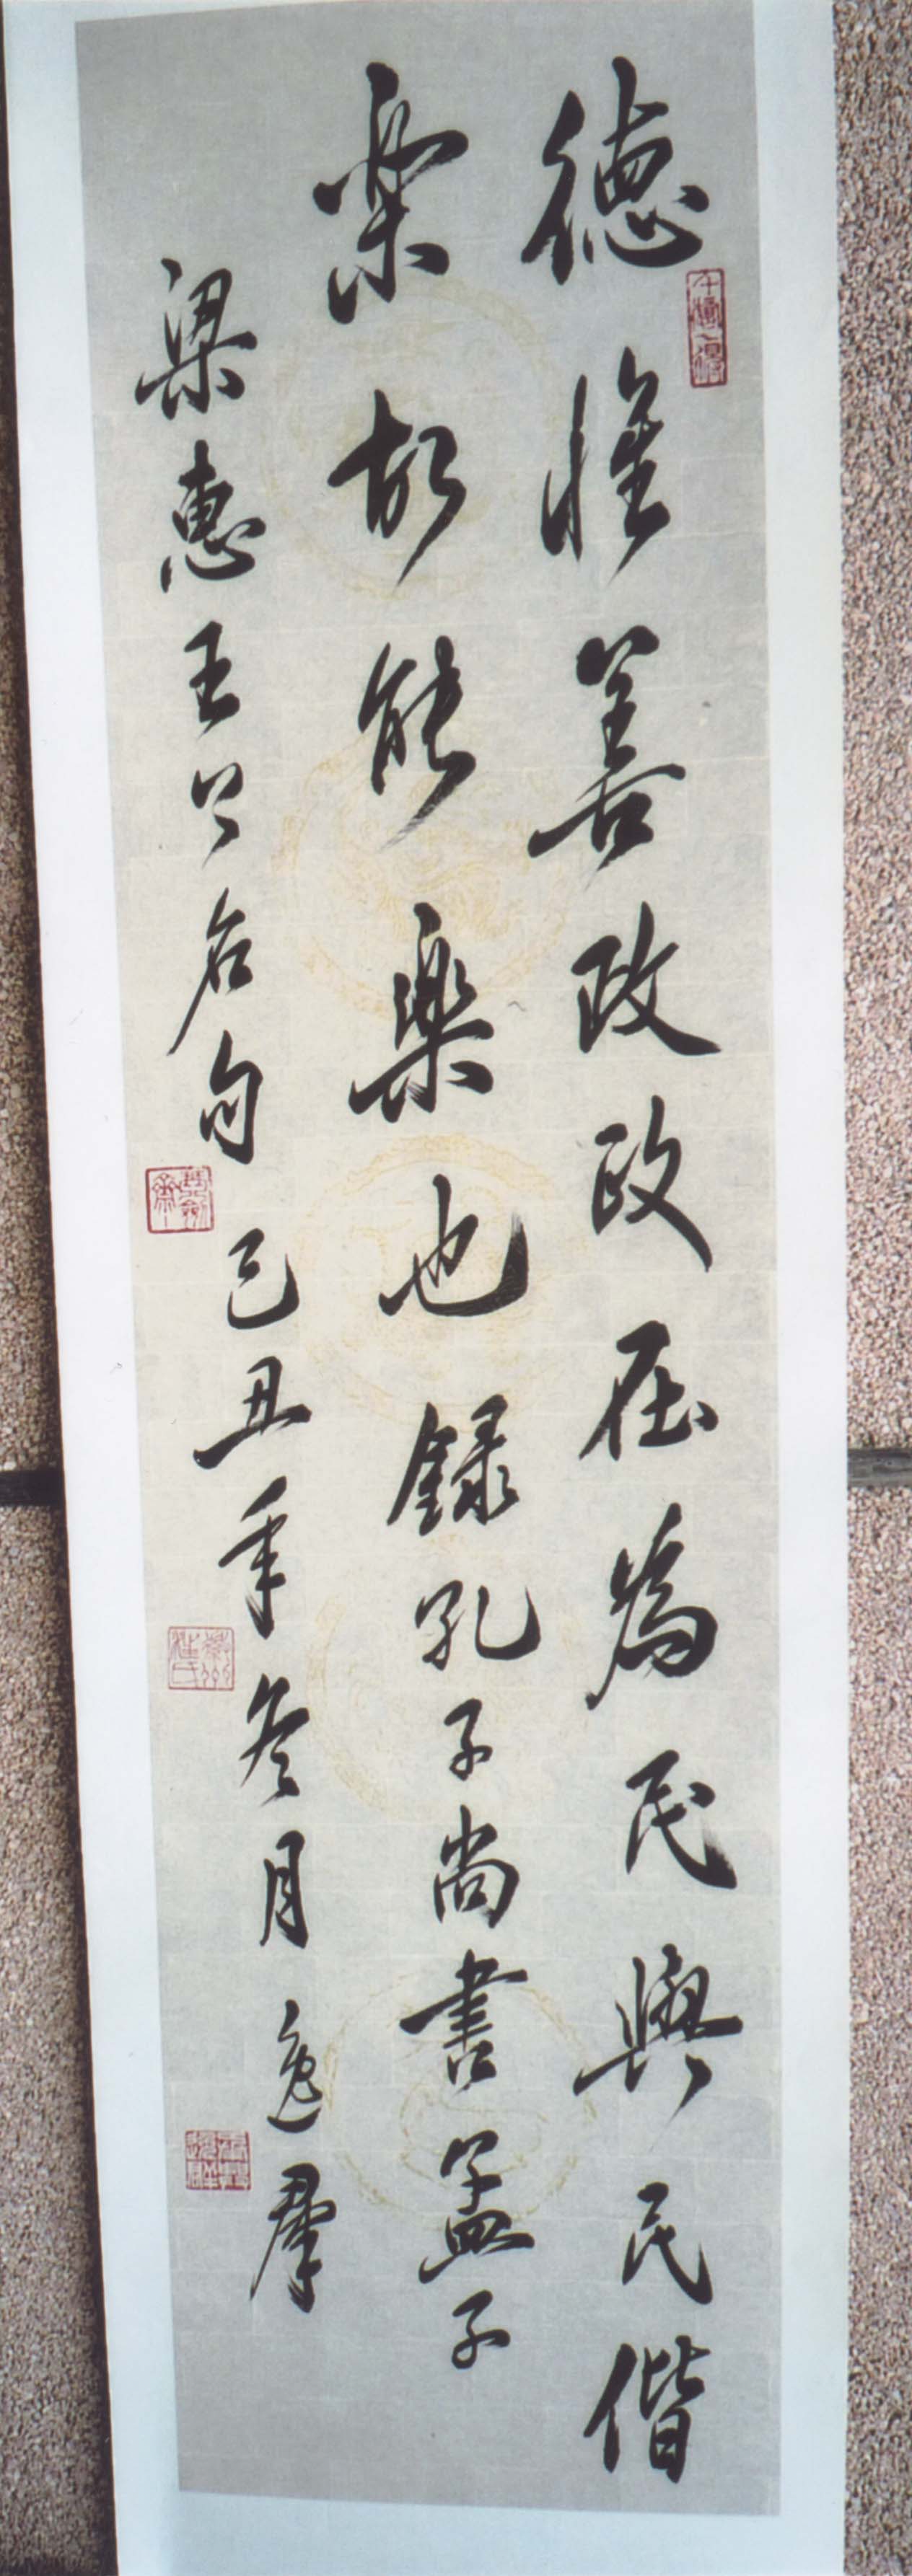 德惟善政政在為民與民偕
樂故能樂也録孔子尚書孟子
梁惠王上名句己丑年冬月逸群